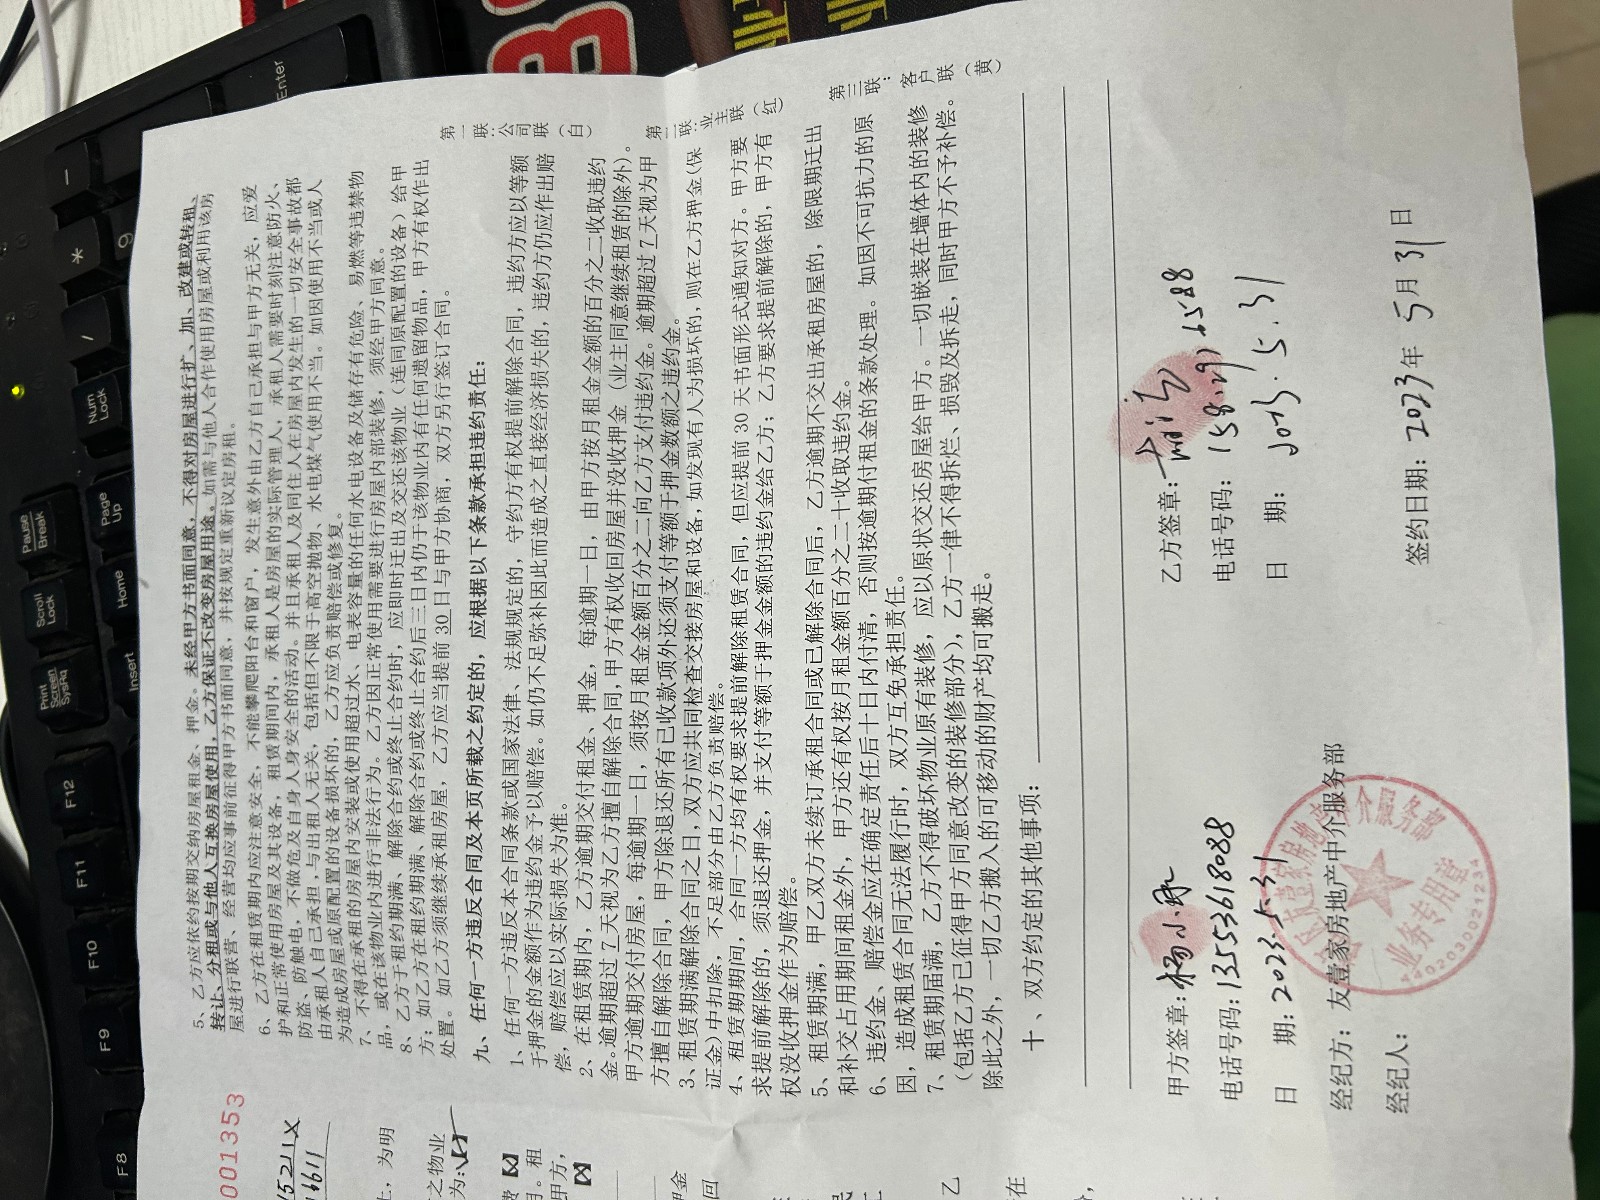 5、乙方应依约按期交纳房屋租金、押金。未经甲方书面同意，不得对房屋进行扩、加、改建或转租、
转让、分租或与他人互换房屋使用，乙方保证不改变房屋用途。如需与他人合作使用房屋或利用该房
屋进行联营、经营均应事前征得甲方书面同意，并按规定重新议定房租。
6、乙方在租赁期内应注意安全，不能攀爬阳台和窗户，发生意外由乙方自己承担与甲方无关，应爱
护和正常使用房屋及其设备，租赁期间内，承租人是房屋的实际管理人，承租人需要时刻注意防火、
防盗、防触电，不做危及自身人身安全的活动。并且承租人及同住人在房屋内发生的一切安全事故都
由承租人自己承担，与出租人无关，包括但不限于高空抛物、水电煤气使用不当。如因使用不当或人
为造成房屋或原配置的设备损坏的，乙方应负责赔偿或修复。
7、不得在承租的房屋内安装或使用超过水、电表容量的任何水电设备及储存有危险、易燃等违禁物
品，或在该物业内进行非法行为。乙方因正常使用需要进行房屋内部装修，须经甲方同意。
8、乙方于租约期满、解除合约或终止合约时，应即时迁出及交还该物业（连同原配置的设备）给甲
方；如乙方在租约期满、解除合约或终止合约后三日内仍于该物业内有任何遗留物品，甲方有权作出
处置。如乙方须继续承租房屋，乙方应当提前 30 日与甲方协商，双方另行签订合同。
九、任何一方违反合同及本页所载之约定的，应根据以下条款承担违约责任：
1、任何一方违反本合同条款或国家法律、法规规定的，守约方有权提前解除合同，违约方应以等额
于押金的金额作为违约金予以赔偿。如仍不足弥补因此而造成之直接经济损失的，违约方仍应作出赔
偿，赔偿应以实际损失为准。
2、在租赁期内，乙方逾期交付租金、押金，每逾期一日，由甲方按月租金金额的百分之二收取违约
金。逾期超过 7 天视为乙方擅自解除合同，甲方有权收回房屋并没收押金（业主同意继续租赁的除外）。
甲方逾期交付房屋，每逾期一日，须按月租金金额百分之二向乙方支付违约金。逾期超过 7 天视为甲
方擅自解除合同，甲方除退还所有已收款项外还须支付等额于押金数额之违约金。
3、租赁期满解除合同之日，双方应共同检查交接房屋和设备，如发现有人为损坏的，则在乙方押金(保
证金)中扣除，不足部分由乙方负责赔偿。
4、租赁期期间，合同一方均有权要求提前解除租赁合同，但应提前 30 天书面形式通知对方。甲方要
求提前解除的，须退还押金，并支付等额于押金金额的违约金给乙方；乙方要求提前解除的，甲方有
权没收押金作为赔偿。
5、租赁期满，甲乙双方未续订承租合同或已解除合同后，乙方逾期不交出承租房屋的，除限期迁出
和补交占用期间租金外，甲方还有权按月租金额百分之二十收取违约金。
6、违约金、赔偿金应在确定责任后十日内付清，否则按逾期付租金的条款处理。如因不可抗力的原
因，造成租赁合同无法履行时，双方互免承担责任。
7、租赁期届满，乙方不得破坏物业原有装修，应以原状交还房屋给甲方。一切嵌装在墙体内的装修
（包括乙方已征得甲方同意改变的装修部分），乙方一律不得拆烂、损毁及拆走，同时甲方不予补偿。
除此之外，一切乙方搬入的可移动的财产均可搬走。
十、双方约定的其他事项：
甲方签章：杨小
电话号码：13553618088
日 期：2023.5.31
乙方签章：
电话号码：
日 期：2023.5.31
经纪方：友壹家房地产中介服务部
经纪人：
签约日期：2023年 5月 31日
业务专用章
4402030021234
第一联：公司联（白）
第二联：业主联（红）
第三联：客户联（黄）
001353
15211X
，为明
之物业
租
甲方，
押金
回
乙
在
Enter
Num Lock
/
*
9
Pause Break
Page Up
Scroll Lock
Home
Print Screen SysRq
Insert
F12
F11
F10
F9
F8